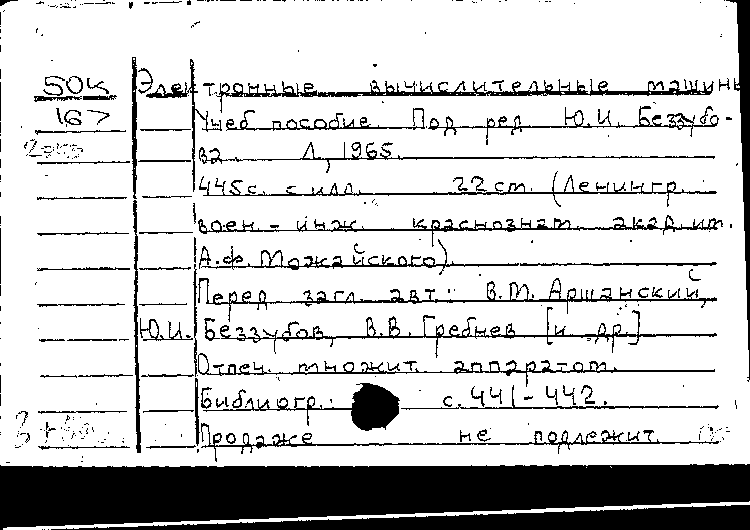 50К Электронные вычислительные машины
167 Учеб. пособие. Под ред. Ю.И. Беззубо-
2 экз ва. Л, 1965.
445с. с илл. 22 cm. (Ленингр.
воен.-инж. краснознам. акад. им.
А.Ф. Можайского).
Перед загл. авт.: В.М. Аршанский,
Ю.И. Беззубов, В.В. Гребнев [и др.]
Отпеч. множит. аппаратом.
Библиогр.: с. 441-442.
Продаже не подлежит